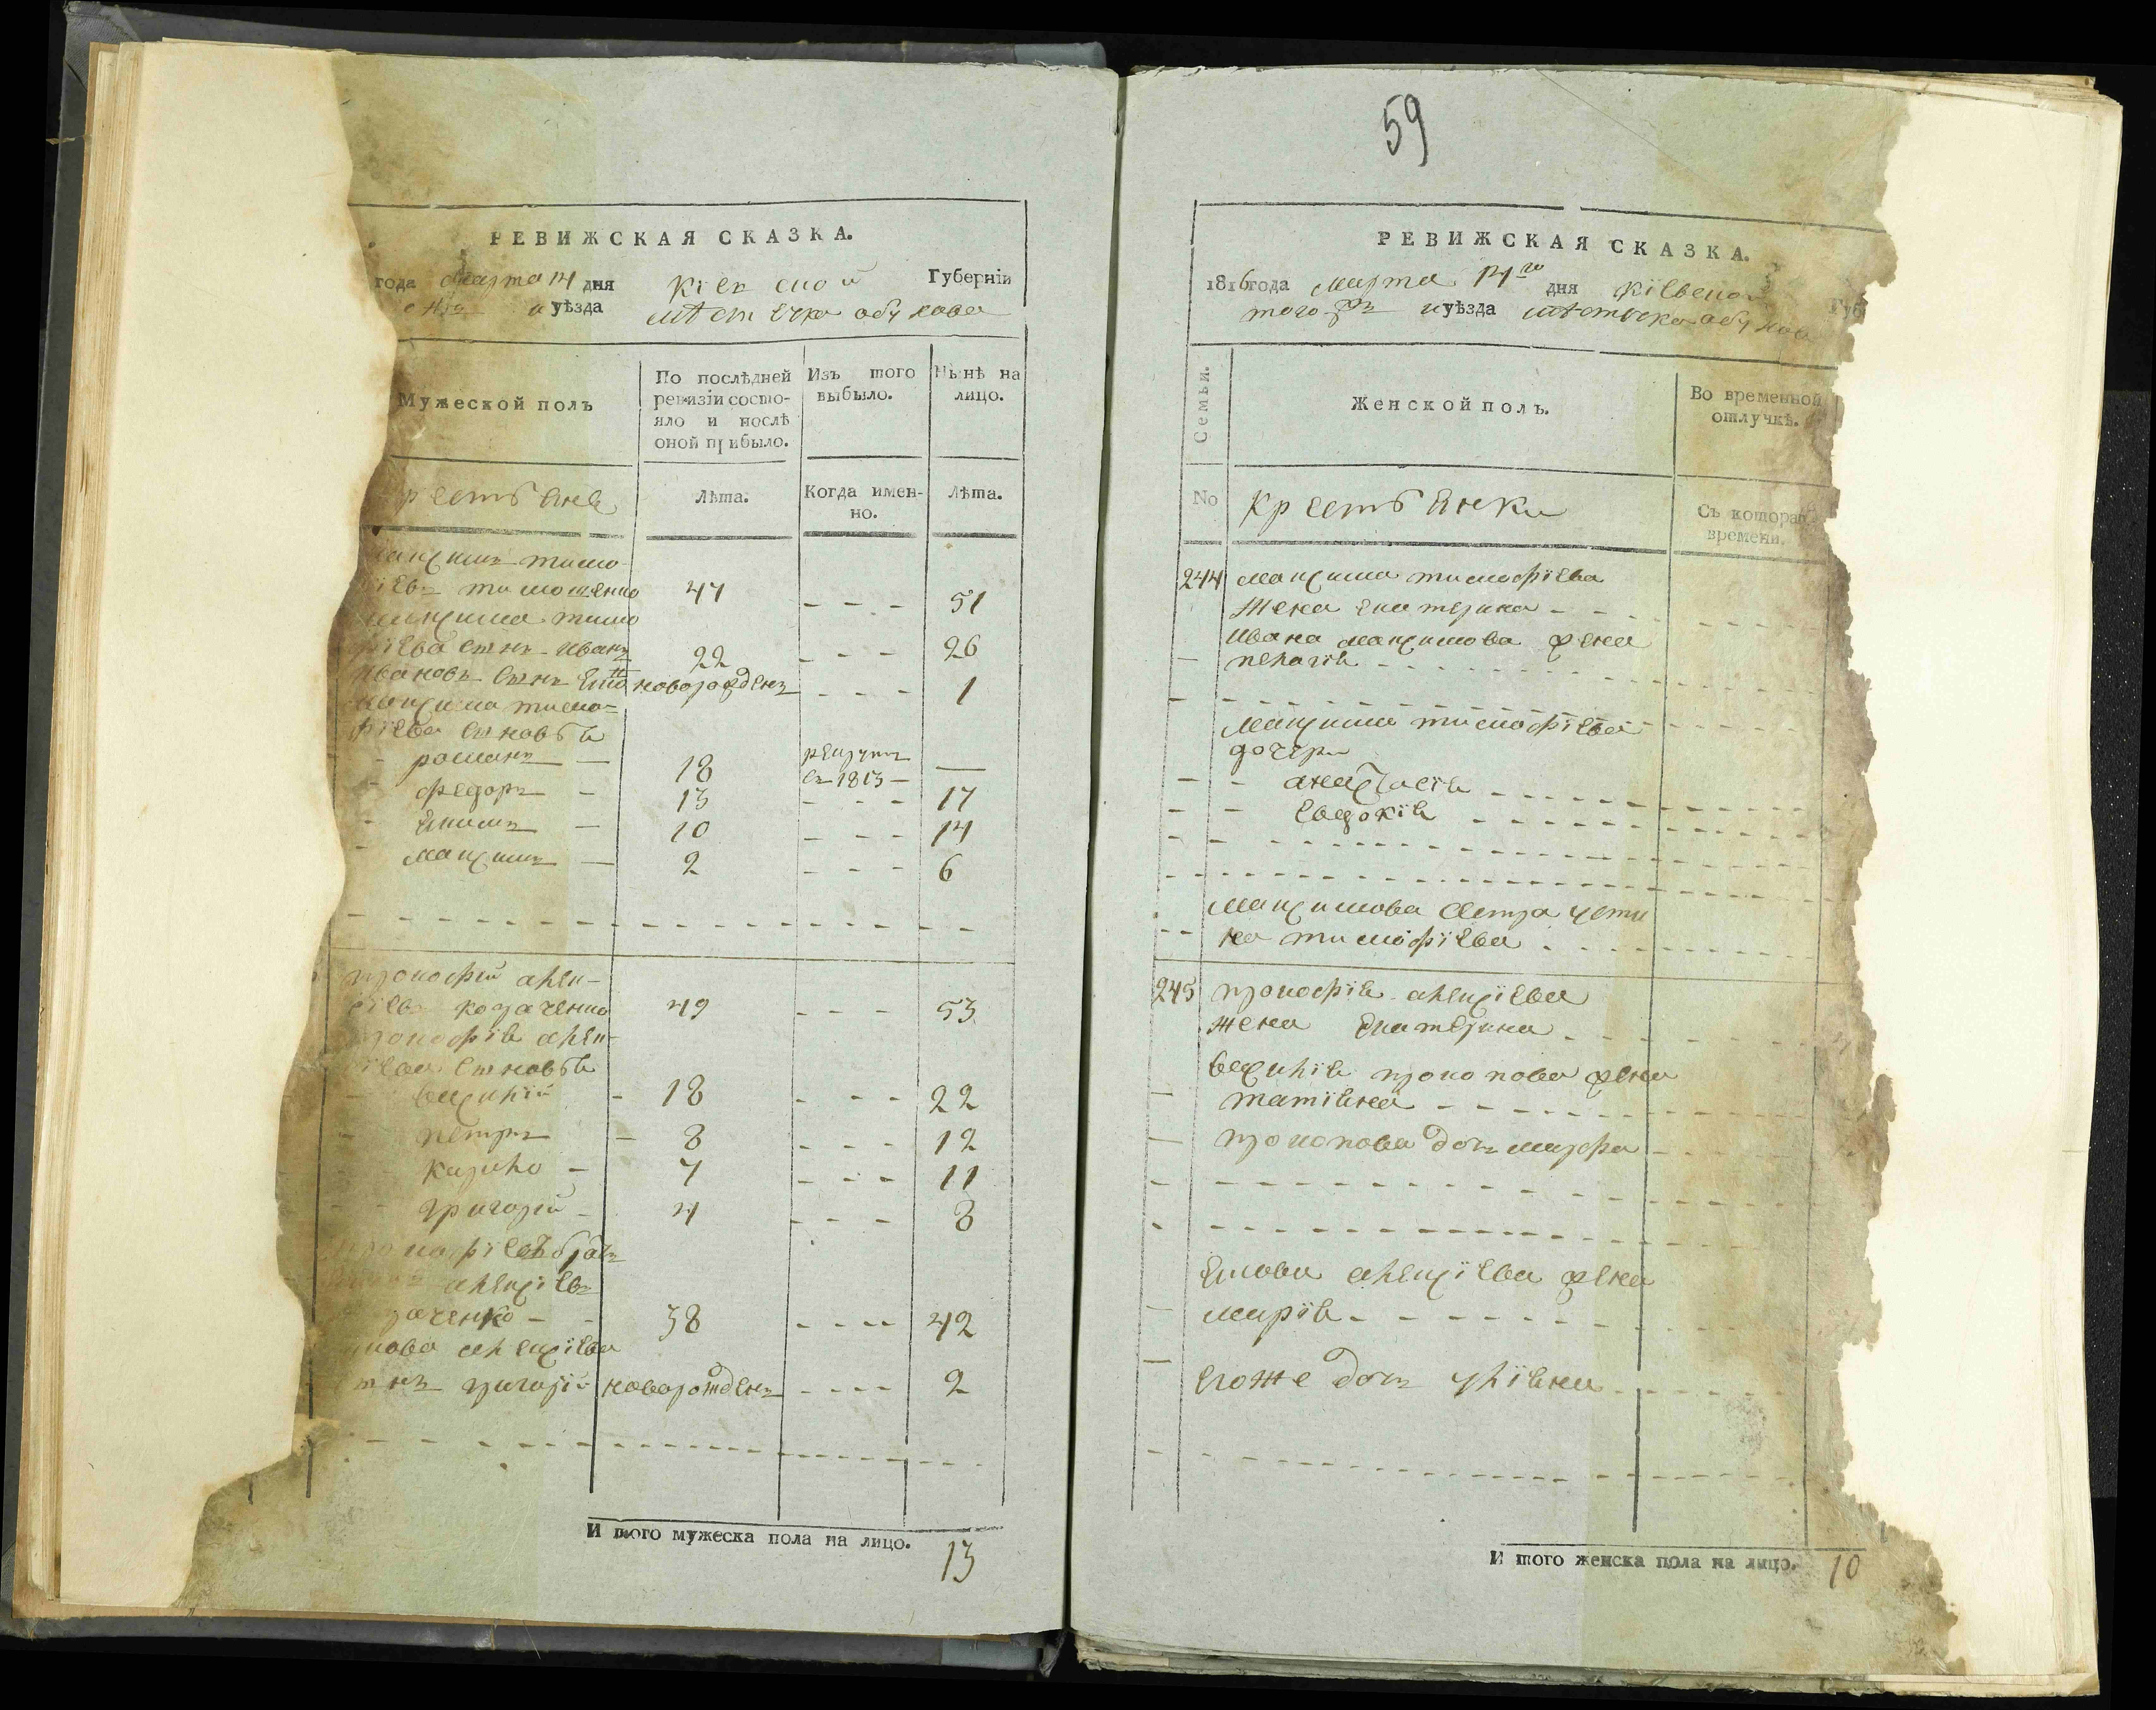 РЕВИЖСКАЯ СКАЗКА.
года Марта 14 дня Кіевской Губерніи
уѣзда мѣстечка обухова
Мужеской полъ
По послѣдней ревизіи состо-яло и послѣ оной прибыло.
Изъ того выбыло.
Нынѣ на лицо.
рестьяне
Лѣта.
Когда имен-но.
Лѣта.
максимъ тимо-
ѣевъ тимошенко 47 - - - 51
максима тимо
фіева сынъ иванъ 22 - - - 26
ивановъ сынъ новорожденъ - - - 1
максима тимо=
фіева сыновья
романъ — 18 рекрутъ въ 1813 — —
федоръ — 13 - - - 17
якимъ — 10 - - - 14
максимъ — 2 - - - 6
прокофій алек-
ѣевъ козаченко 49 - - - 53
прокофія алек-
ѣева сыновья
василій - 18 - - - 22
петръ - 8 - - - 12
кирило - 7 - - - 11
григорій - 4 - - - 8
прокофіевъ братъ
алексіевъ
заченко - - 38 - - - - 42
алексіева
григорій новорожденъ - - - - 2
И того мужеска пола на лицо. 13
59
РЕВИЖСКАЯ СКАЗКА.
1816 года марта 14го дня кіевской Губ
того уѣзда мѣстечка обухова
Семьи.
Женской полъ.
Во временной отлучкѣ.
No
Крестьянки
Съ котораго времени.
244 максима тимофіева
жена екатерина - -
ивана максимова жена
— пелагія
максима тимофіева
дочери
— - анастасія
— - евдокія
максимова сестра усти
на тимофіева
245 прокофія алексіева
жена екатерина
василія прокопова жена
— татіяна
— прокопова дочь марфа
якова алексіева жена
— марія
— егоже дочь уліяна
И того женска пола на лицо. 10